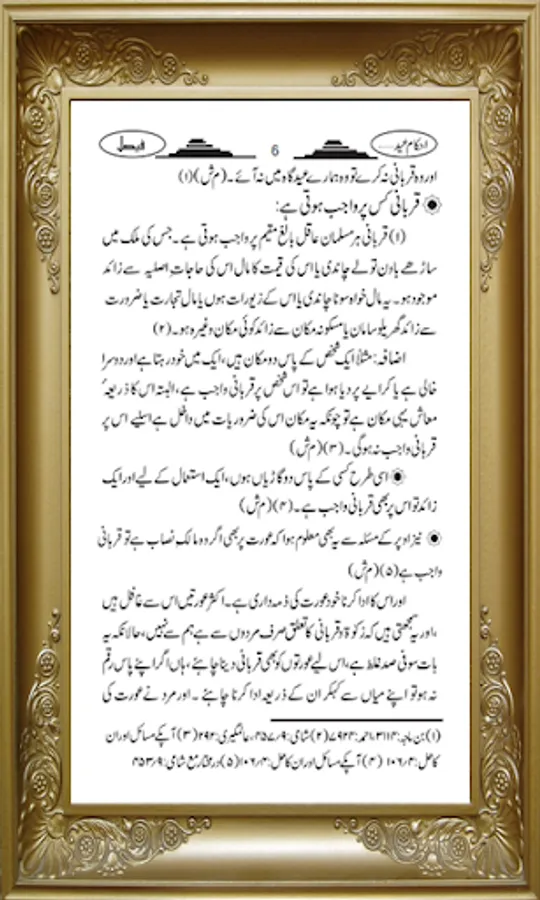 احکام عید.....
6
فیصل
اور وہ قربانی نہ کرے تو وہ ہمارے عیدگاہ میں نہ آئے۔ (م ش) (۱)
قربانی کس پر واجب ہوتی ہے:
(۱) قربانی ہر مسلمان عاقل بالغ مقیم پر واجب ہوتی ہے۔ جس کی ملک میں
ساڑھے باون تولے چاندی یا اس کی قیمت کا مال اس کی حاجات اصلیہ سے زائد
موجود ہو۔ یہ مال خواہ سونا چاندی یا اس کے زیورات ہوں یا مال تجارت یا ضرورت
سے زائد گھریلو سامان یا مسکونہ مکان سے زائد کوئی مکان وغیرہ ہو۔ (۲)
اضافہ: مثلاً ایک شخص کے پاس دو مکان ہیں، ایک میں خود رہتا ہے اور دوسرا
خالی ہے یا کرایے پر دیا ہوا ہے تو اس شخص پر قربانی واجب ہے، البتہ اس کا ذریعۂ
معاش یہی مکان ہے تو چونکہ یہ مکان اس کی ضروریات میں داخل ہے اسلیے اس پر
قربانی واجب نہ ہوگی۔ (۳) (م ش)
اسی طرح کسی کے پاس دو گاڑیاں ہوں، ایک استعمال کے لیے اور ایک
زائد تو اس پر بھی قربانی واجب ہے۔ (۴) (م ش)
نیز اوپر کے مسئلہ سے یہ بھی معلوم ہوا کہ عورت پر بھی اگر وہ مالک نصاب ہے تو قربانی
واجب ہے (۵) (م ش)
اور اس کا ادا کرنا خود عورت کی ذمہ داری ہے۔ اکثر عورتیں اس سے غافل ہیں
،اور یہ سمجھتی ہیں کہ زکوۃ و قربانی کا تعلق صرف مردوں سے ہے ہم سے نہیں، حالانکہ یہ
بات سو فی صد غلط ہے، اس لیے عورتوں کو بھی قربانی دینا چاہئے، ہاں اگر اپنے پاس رقم
نہ ہو تو اپنے میاں سے کہکر ان کے ذریعہ ادا کرنا چاہئے۔ اور مرد نے عورت کی
(۱) بن ماجہ: ۳۱۱۴، احمد: ۷۹۲۴ (۲) شامی: ۴۵۷/۹، عالمگیری: ۲۹۲ (۳) آپکے مسائل اور ان
کا حل: ۱۰۶/۴ (۴) آپکے مسائل اور ان کا حل: ۱۰۶/۴ (۵) در مختار مع شامی: ۴۵۳/۹